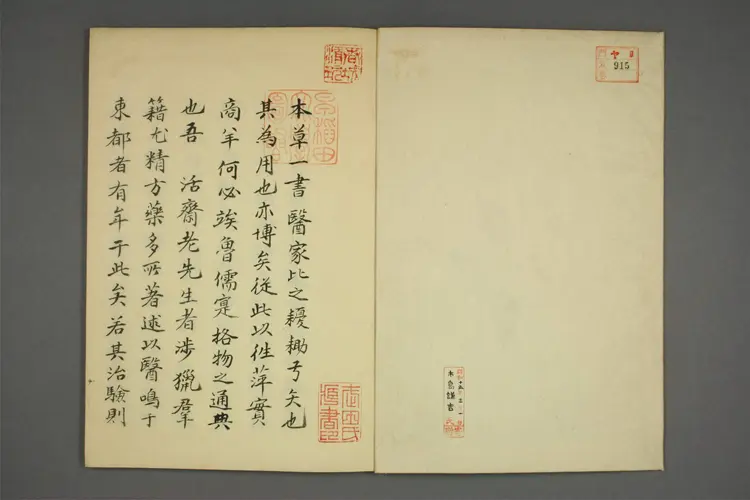 本草一書醫家比之耰耡弓矢也
其為用也亦博矣從此以徃萍實
商羊何必竢魯儒寔格物之通典
也吾　活齋老先生者涉獵羣
籍尤精方藥多所著述以醫鳴于
東都者有年于此矣若其治驗則
915